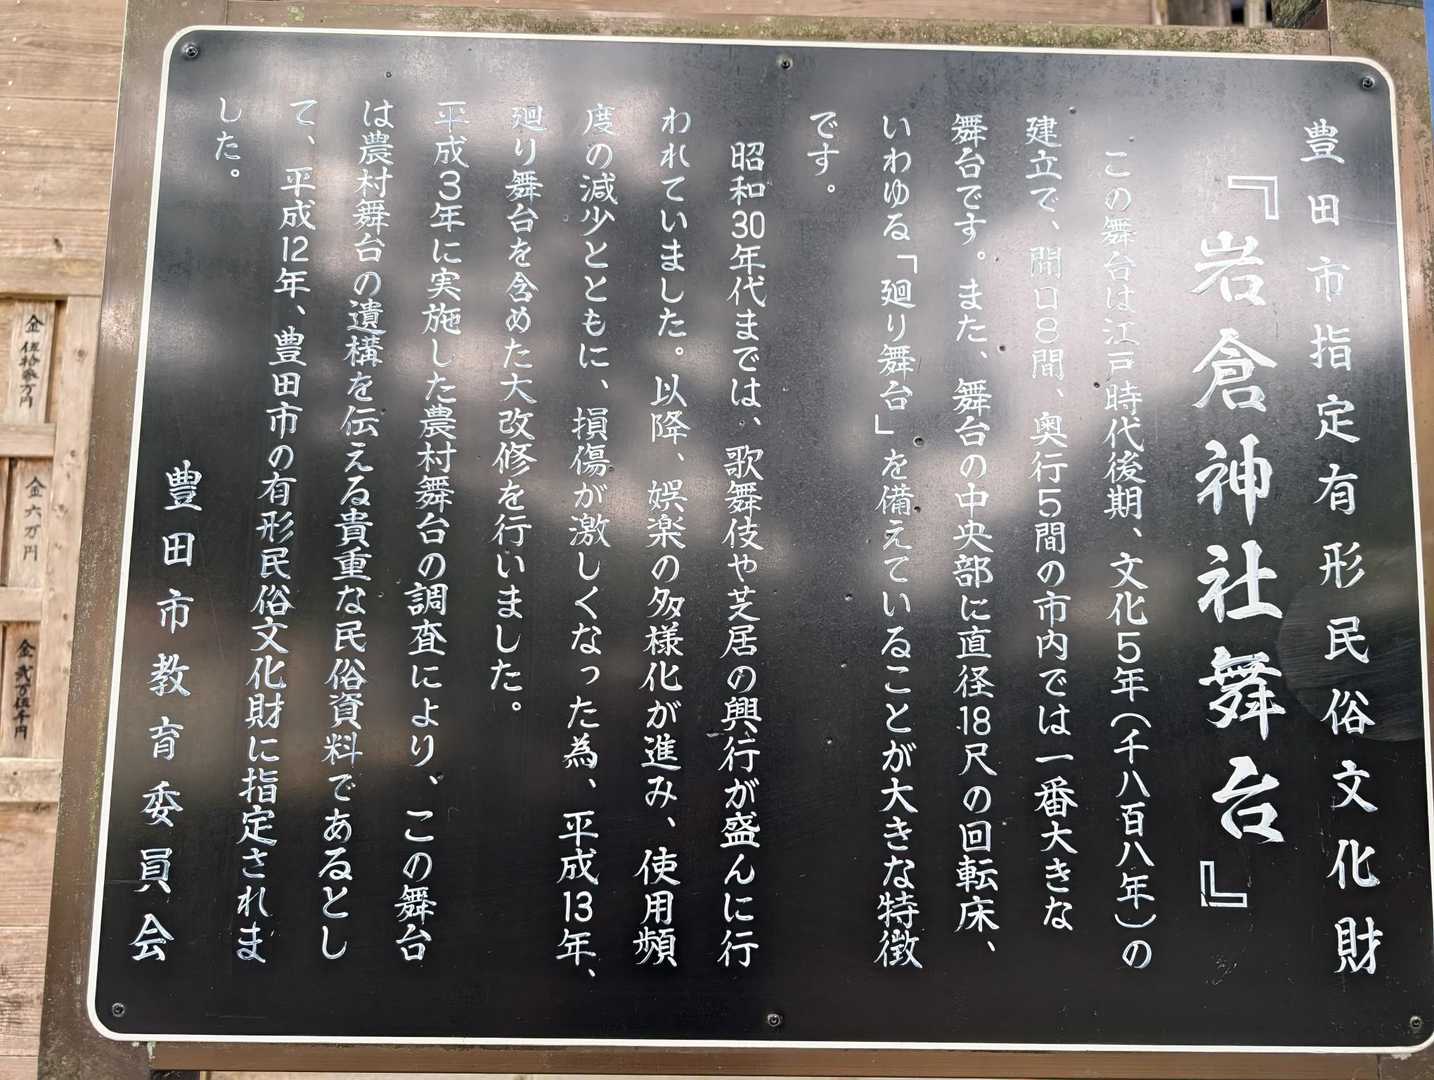 豊田市指定有形民俗文化財
『岩倉神社舞台』
この舞台は江戸時代後期、文化5年(千八百八年)の
建立で、開口8間、奥行5間の市内では一番大きな
舞台です。また、舞台の中央部に直径18尺の回転床、
いわゆる「廻り舞台」を備えていることが大きな特徴
です。
昭和30年代までは、歌舞伎や芝居の興行が盛んに行
われていました。以降、娯楽の多様化が進み、使用頻
度の減少とともに、損傷が激しくなった為、平成13年、
廻り舞台を含めた大改修を行いました。
平成3年に実施した農村舞台の調査により、この舞台
は農村舞台の遺構を伝える貴重な民俗資料であるとし
て、平成12年、豊田市の有形民俗文化財に指定されま
した。
豊田市教育委員会
金伍拾参万円
金六万円
金弐万伍千円